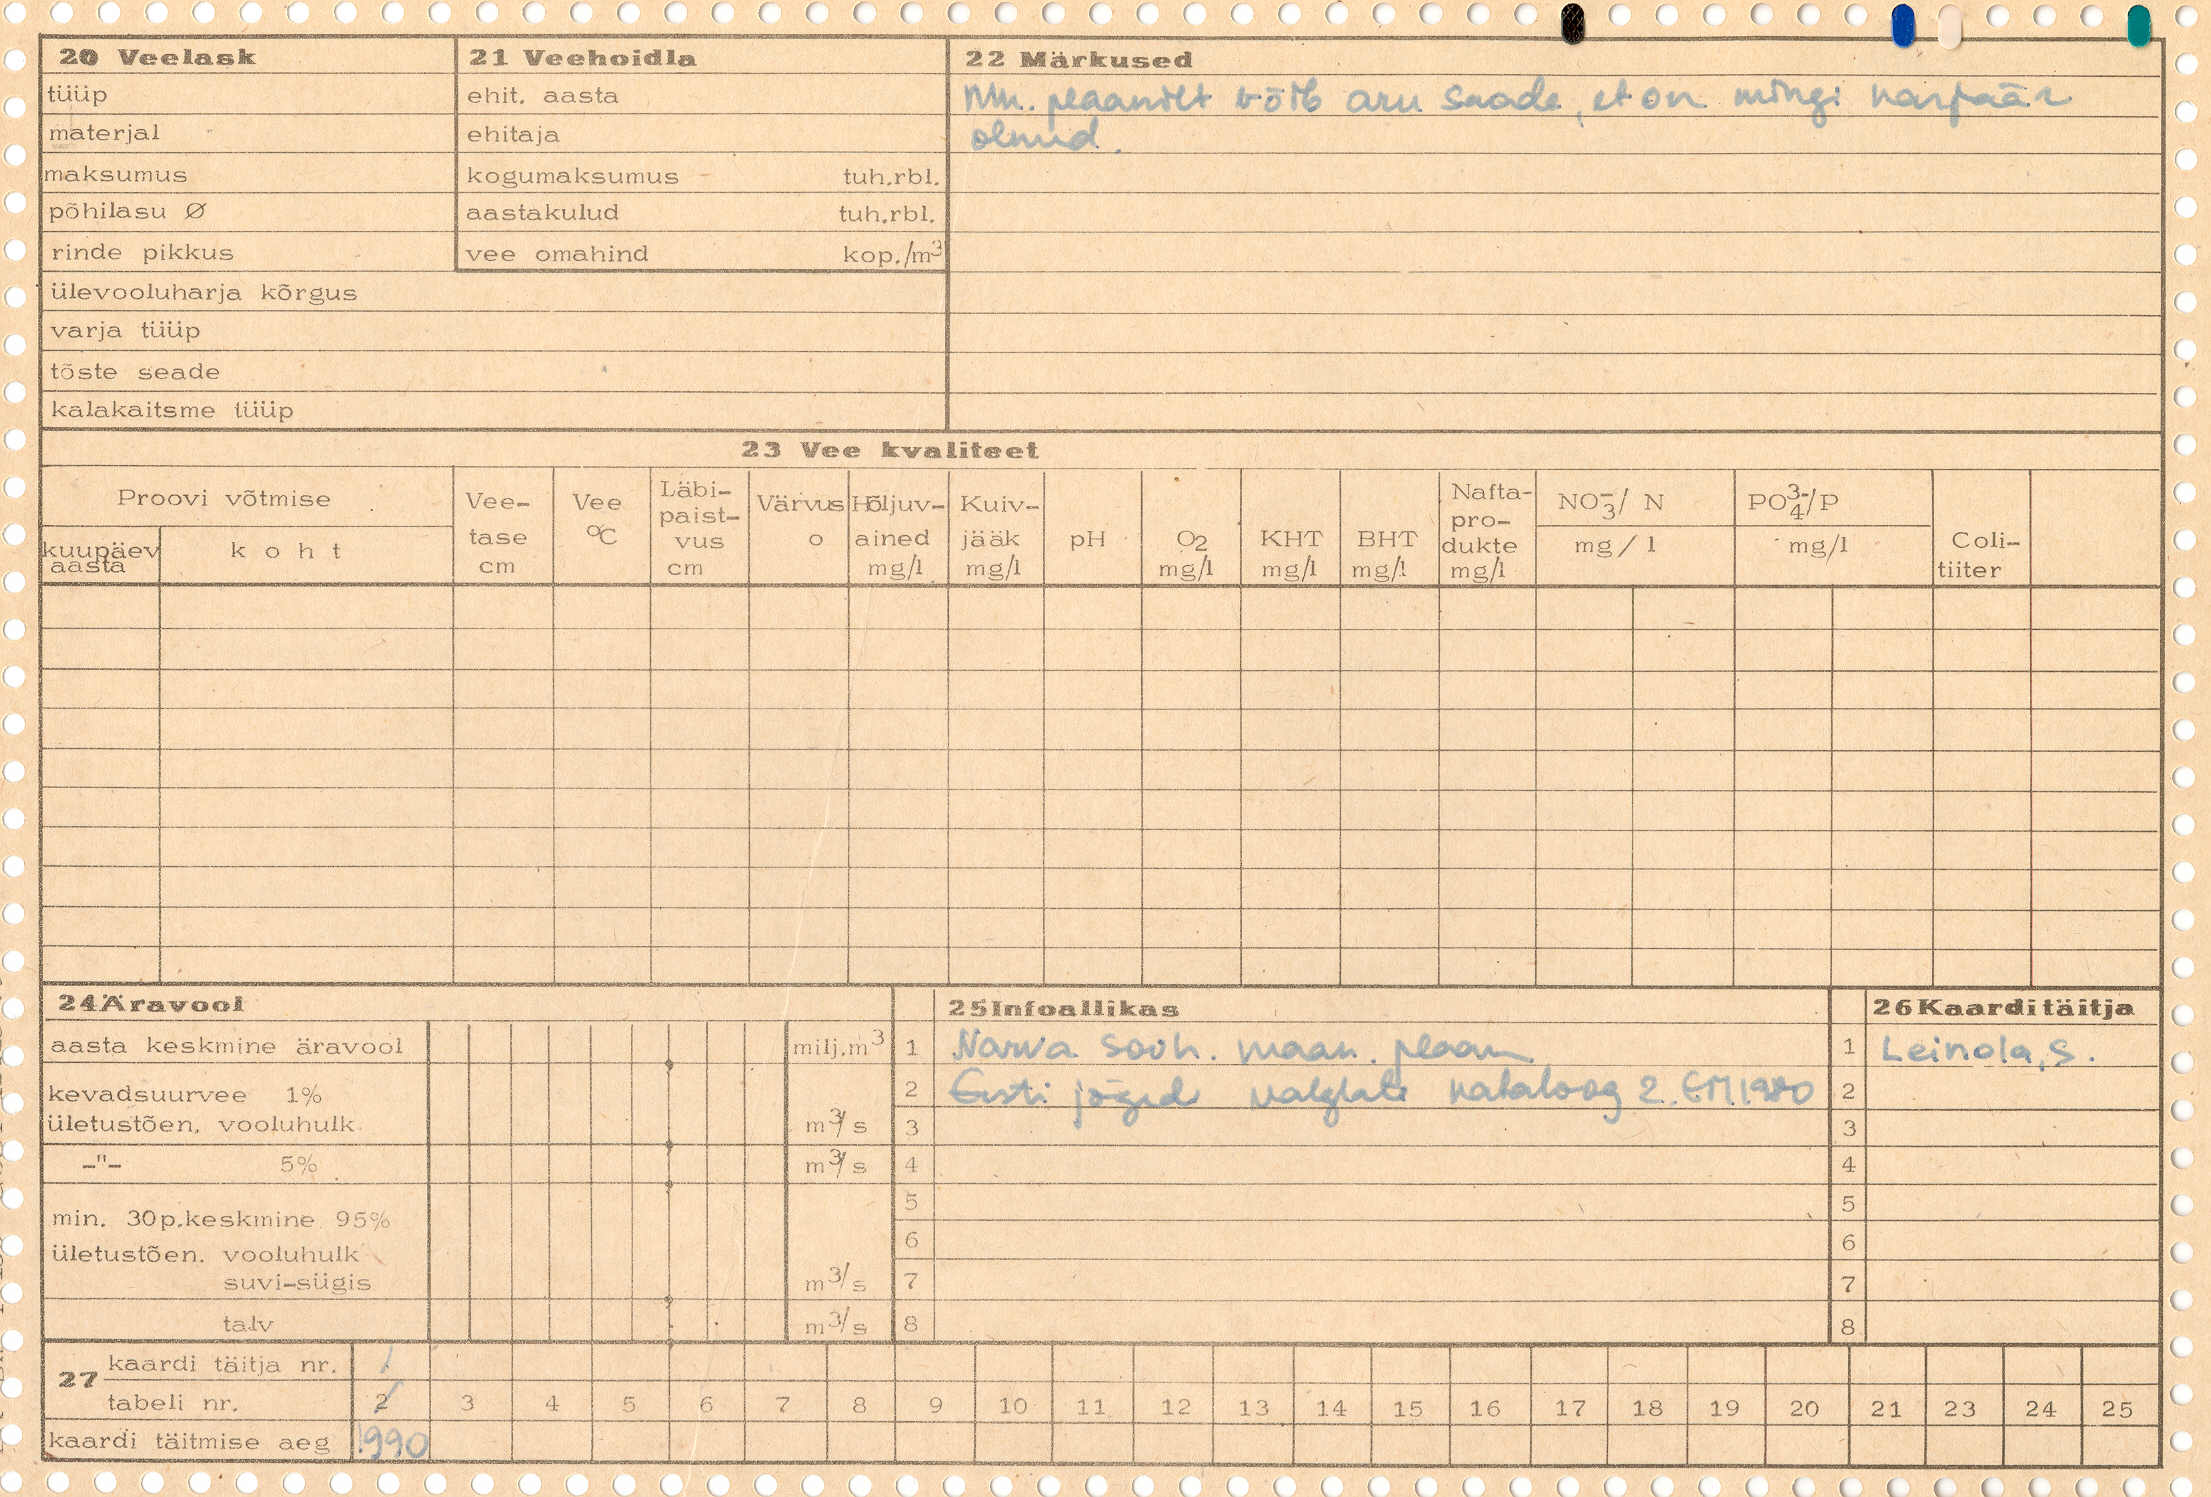 20 Veelask
tüüp
materjal
maksumus
põhilasu Ø
rinde pikkus
ülevooluharja kõrgus
varja tüüp
tõste seade
kalakaitsme tüüp
21 Veehoidla
ehit. aasta
ehitaja
kogumaksumus tuh.rbl.
aastakulud tuh.rbl.
vee omahind kop./m³
22 Märkused
plaanilt võib aru saada, et on mingi
olnud.
23 Vee kvaliteet
Proovi võtmise
kuupäev aasta
koht
Vee-
tase
cm
Vee
°C
Läbi-
paist-
vus
cm
Värvus
o
Hõljuv-
ained
mg/l
Kuiv-
jääk
mg/l
pH
O2
mg/l
KHT
mg/l
BHT
mg/l
Nafta-
pro-
dukte
mg/l
NO₃⁻/ N
mg/l
PO₄³⁻/P
mg/l
Coli-
tiiter
24 Äravool
aasta keskmine äravool milj.m³
kevadsuurvee 1%
ületustõen. vooluhulk m³/s
-"- 5% m³/s
min. 30p.keskmine 95%
ületustõen. vooluhulk
suvi-sügis m³/s
talv m³/s
25 Infoallikas
1 Narva sovh. maak. plaan
2 Eesti jõged valglate kataloog 2. EM 1980
3
4
5
6
7
8
26 Kaarditäitja
1 Leinola, S.
2
3
4
5
6
7
8
27
kaardi täitja nr. 1
tabeli nr. 2 3 4 5 6 7 8 9 10 11 12 13 14 15 16 17 18 19 20 21 23 24 25
kaardi täitmise aeg 1990